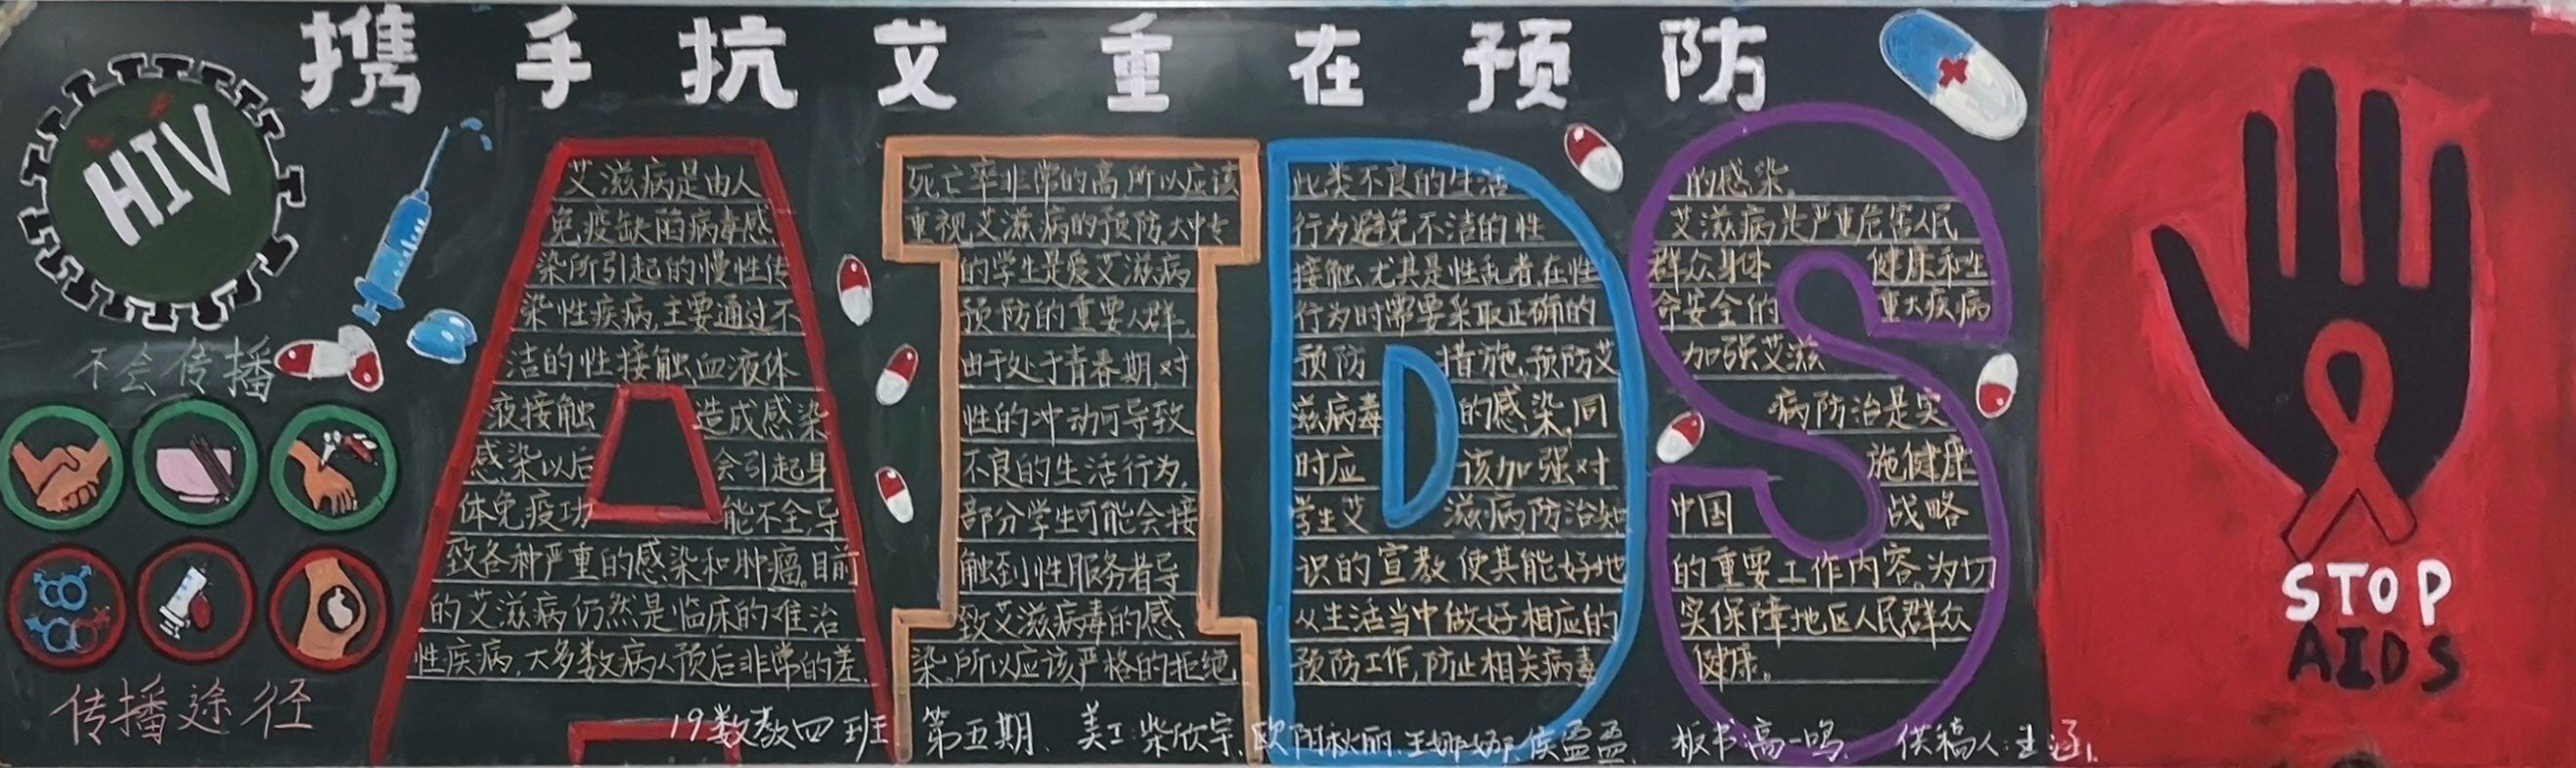 携手抗艾重在预防
HIV
不会传播
传播途径
艾滋病是由人
免疫缺陷病毒感
染所引起的慢性传
染性疾病,主要通过不
洁的性接触,血液体
液接触造成感染
感染以后会引起身
体免疫功能不全,导
致各种严重的感染和肿瘤。目前
的艾滋病仍然是临床的难治
性疾病,大多数病人预后非常的差.
死亡率非常的高,所以应该
重视艾滋病的预防,大中专
的学生是爱艾滋病
预防的重要人群.
由于处于青春期,对
性的冲动可导致
不良的生活行为.
部分学生可能会接
触到性服务者导
致艾滋病毒的感
染.所以应该严格的拒绝
此类不良的生活
行为避免不洁的性
接触.尤其是性乱者,在性
行为时需要采取正确的
预防措施,预防艾
滋病毒的感染,同
时应该加强对
学生艾滋病防治知
识的宣教使其能好地
从生活当中做好相应的
预防工作,防止相关病毒
的感染.
艾滋病是严重危害人民
群众身体健康和生
命安全的重大疾病
加强艾滋
病防治是实
施健康
中国战略
的重要工作内容。为切
实保障地区人民群众
健康。
STOP
AIDS
19数教四班 第五期、美工:柴欣宇.欧阳秋丽.王娜娜.侯盈盈. 板书:高一鸣. 供稿人: